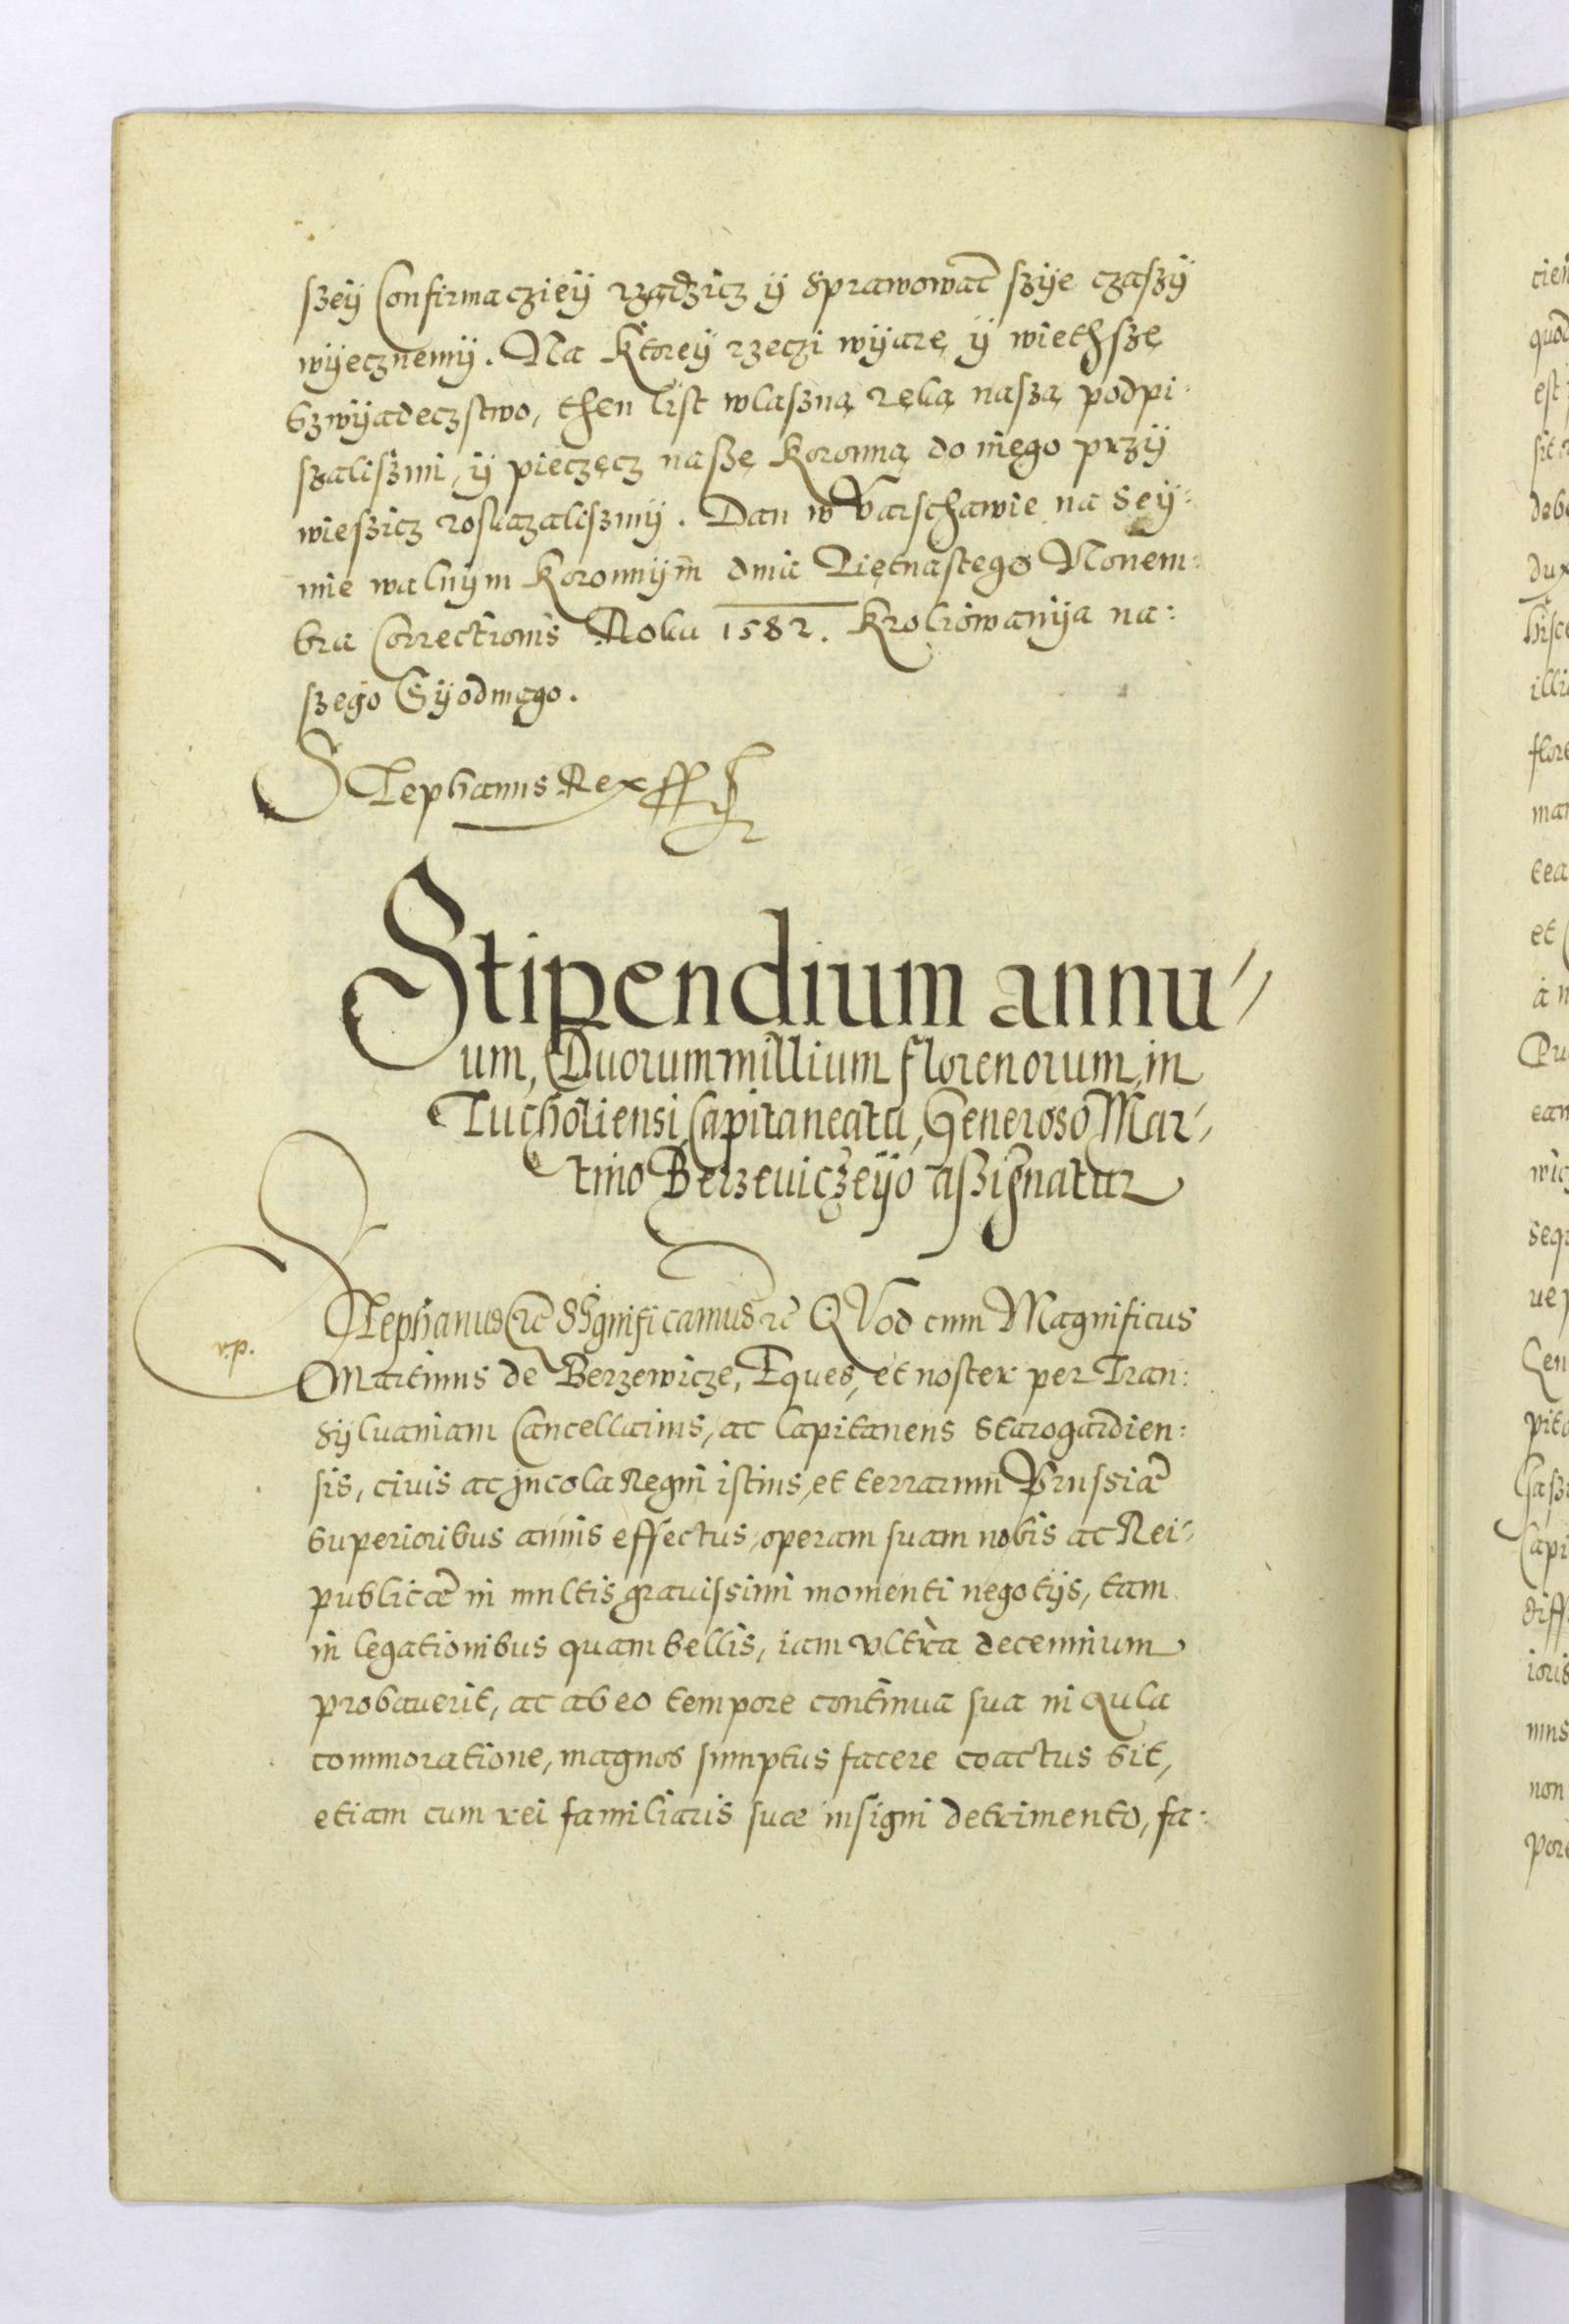 szeÿ Confirmaczieÿ rządzicz ÿ sprawowac szÿe czaszÿ
wÿecznemÿ. Na Ktoreÿ rzeczi wÿarę ÿ wiethsze
szwÿadeczstwo, then list wlaszną ręką naszą podpi:
szaliszmi, ÿ pieczęcz nasze Koronną do niego przÿ
wieszicz roskazaliszmÿ. Dan w Varschawie na Seÿ:
mie walnÿm Koronnÿm dnia Piętnastego Nouem:
bra Correctionis Roku 1582. Kroliowanÿa na:
szego Sÿodmego.
Stephanus Rex
Stipendium annu//
um, Duorum millium florenorum, in
Tucholiensi Capitaneatu, Generoso Mar//
tino Berzeuiczeÿo aszignatur
v.p.
Stephanus etc Significamus etc QVod cum Magnificus
Martinus de Berzewicze, Eques, et noster per Tran:
sÿluaniam Cancellarius, ac Capitaneus Starogardien:
sis, ciuis ac jncola Regni istius, et terrarum Prussiæ
superioribus annis effectus, operam suam nobis ac Rei/
publicæ in multis grauissimi momenti negotÿs, tam
in legationibus quam bellis, iam vltra decennium
probauerit, ac ab eo tempore continua sua in Aula
commoratione, magnos sumptus facere coactus sit,
etiam cum rei familiaris suæ insigni detrimento, fa: